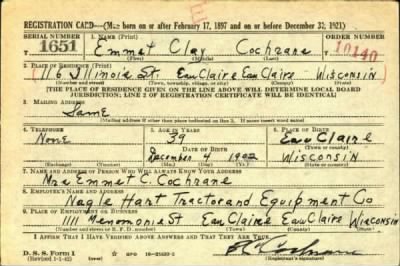 REGISTRATION CARD—(Men born on or after February 17, 1897 and on or before December 31, 1921)
SERIAL NUMBER 1. NAME (Print) ORDER NUMBER
1651 Emmet Clay Cochrane 10140
(First) (Middle) (Last)
2. PLACE OF RESIDENCE (Print)
116 Illinois St. Eau Claire Eau Claire Wisconsin
(Number and street) (Town, township, village, or city) (County) (State)
[THE PLACE OF RESIDENCE GIVEN ON THE LINE ABOVE WILL DETERMINE LOCAL BOARD
JURISDICTION; LINE 2 OF REGISTRATION CERTIFICATE WILL BE IDENTICAL]
3. MAILING ADDRESS
Same
[Mailing address if other than place indicated on line 2. If same insert word same]
4. TELEPHONE 5. AGE IN YEARS 6. PLACE OF BIRTH
None 39 Eau Claire
DATE OF BIRTH (Town or county)
December 4 1902 Wisconsin
(Exchange) (Number) (Mo.) (Day) (Yr.) (State or country)
7. NAME AND ADDRESS OF PERSON WHO WILL ALWAYS KNOW YOUR ADDRESS
Mrs Emmet C. Cochrane
8. EMPLOYER'S NAME AND ADDRESS
Nagle Hart Tractor and Equipment Co
9. PLACE OF EMPLOYMENT OR BUSINESS
1111 Menomonie St Eau Claire Eau Claire Wisconsin
(Number and street or R. F. D. number) (Town) (County) (State)
I AFFIRM THAT I HAVE VERIFIED ABOVE ANSWERS AND THAT THEY ARE TRUE.
D. S. S. Form 1
(Revised 1-1-42) GPO Cochrane
(Registrant's signature)